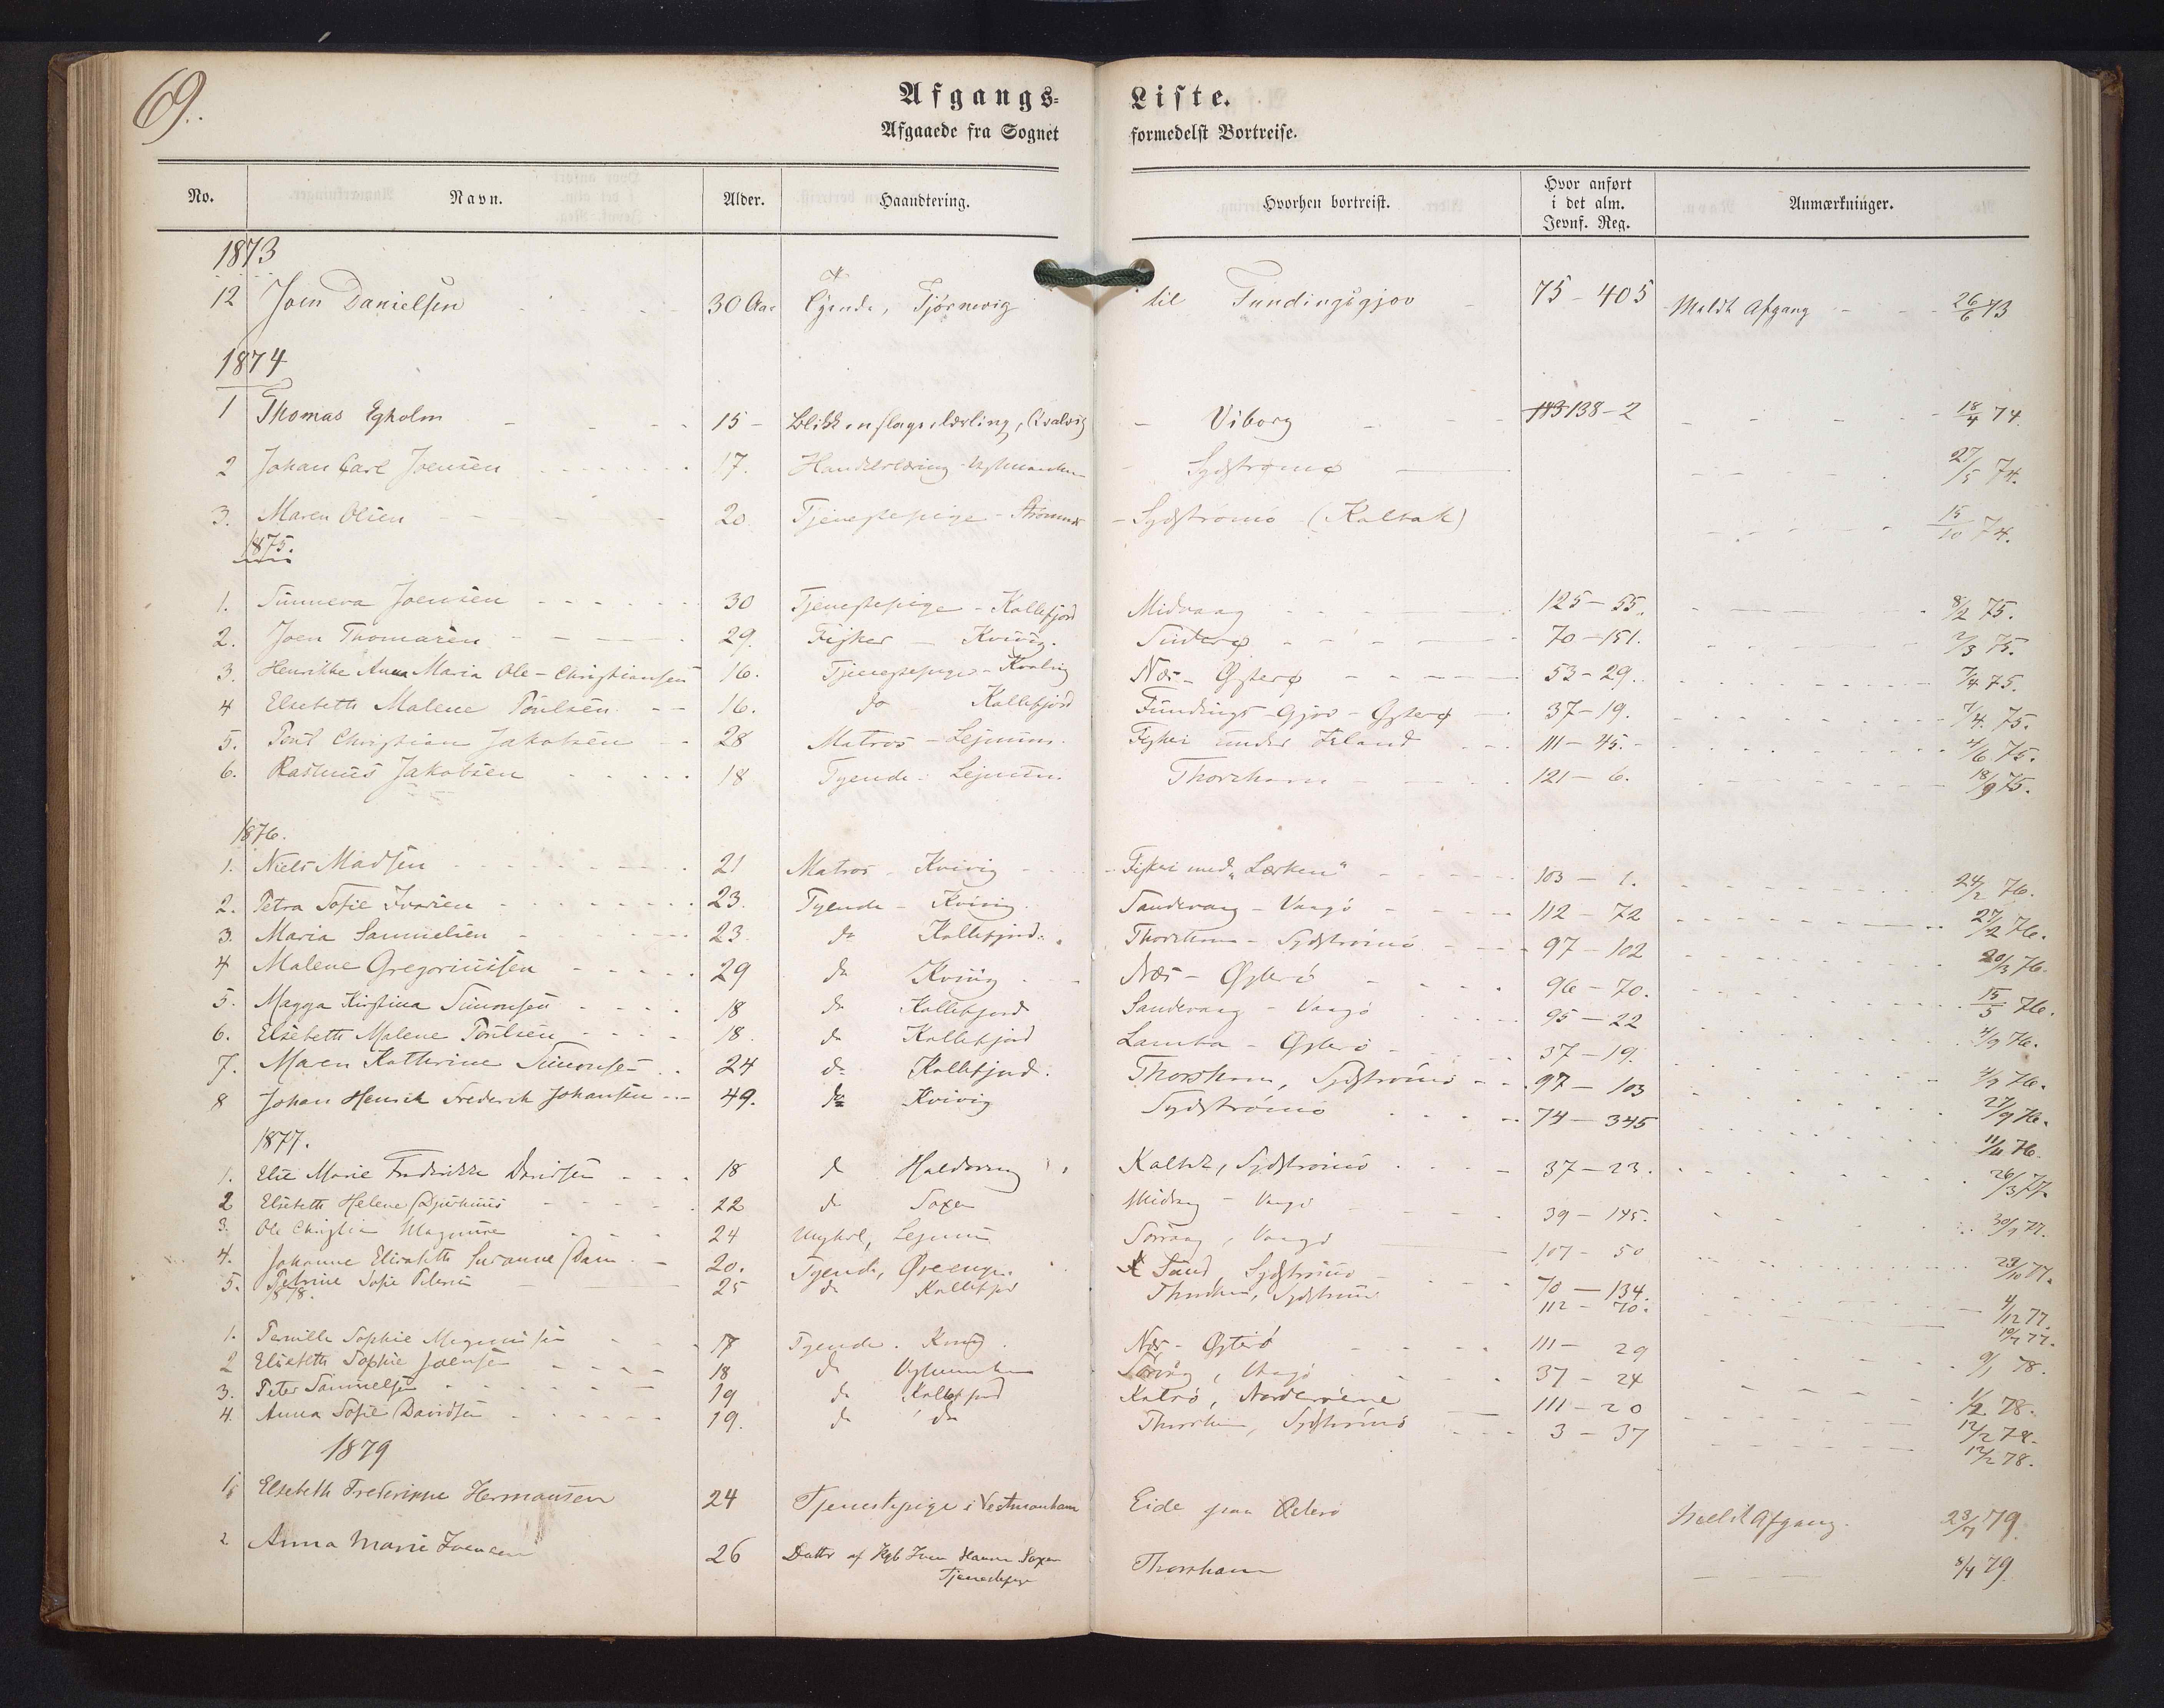 69.
Afgangs- Liste.
Afgaaede fra Sognet formedelst Bortreise.
No. Navn. Alder. Haandtering. Hvorhen bortreist. Hvor anført i det alm. Jevnf. Reg. Anmærkninger.
1873
12 Joen Danielsen 30 Aar Tyende, Tjørnevig til Fundingsgjov 75 - 405 Meldt Afgang 26/6 73
1874
1 Thomas Egholm 15 - Blikkenslagerlærling, Qvalvig - Viborg 138 - 2 18/4 74.
2 Johan Carl Joensen 17. - Sydstrømø 27/5 74.
3. Maren Olsen 20 Tjenestepige - Strømnæs - Sydstrømø (Kalbak) 15/10 74.
1875.
1. Sunneva Joensen 30 Tjenestepige - Kollefjord Midvaag 125 - 55. 8/2 75.
2. Joen Thomasen 29. Fisker - Kvivig. Suderø 70 - 151. 2/3 75.
3. Henrikke Anna Maria Ole-Christiansen 16. Tjenestepige - Kvalvig Næs - Østerø 53 - 29. 7/4 75.
4 Elsebeth Malene Poulsen 16. do Kollefjord Fundings-Gjov - Østerø 37 - 19. 7/4. 75.
5. Poul Christian Jakobsen 28 Matros - Lejnum. Fiskei under Island 111 - 45. 4/6 75.
6. Rasmus Jakobsen 18 Tyende - Lejnum Thorshavn 121 - 6. 18/9 75.
1876.
1. Niels Madsen 21 Matros - Kvivig - Fiskei med „Lærken" 103 - 1. 24/2 76.
2. Petra Sofie Ivarsen 23. Tyende - Kvivig. Sandevaag - Vaagø 112 - 72 27/2 76.
3. Maria Samuelsen 23. do Kollefjord. Thorshavn - Sydstrømø 97 - 102 20/3 76.
4 Malene Gregoriussen 29 do Kvivig Næs - Østerø 96 - 70. 15/5 76.
5. Magga Kirstina Simonsen 18 do Kollefjord Sandevaag - Vaagø 95 - 22 4/9 76.
6. Elsebeth Malene Poulsen 18. do Kollefjord Lamba - Østerø 37 - 19. 4/9 76.
7. Maren Katherine Simonsen 24 do Kollefjord. Thorshavn, Sydstrømø 97 - 103 27/9 76.
8 Johan Henrik Frederik Johansen 49. do Kvivig Sydstrømø 74 - 345 11/11 76.
1877.
1. Else Marie Fredrikke Davidsen 18 do Haldorsvig Kalbak, Sydstrømø 37 - 23. 26/3 77.
2 Elsebeth Helene Djurhuus 22 do Saxen Midvaag - Vaagø 39 - 145. 30/9 77.
3. Ole Christian Magnussen 24 Ungkarl, Lejnum Sørvaag, Vaagø 107 - 50 29/10 77.
4. Johanne Elisabeth Susanne Dam 20. Tyende, Øreenge Sund, Sydstrømø 70 - 134. 4/12 77.
5. Petrine Sofie Petersen 25 do Kollefjord Thorshavn, Sydstrømø 112 - 70.
1878.
1. Pernille Sophie Magnussen 17 Tyende. Kvivig Næs - Østerø 111 - 29 9/1 78.
2 Elsebeth Sophie Joensen 18 do Sørvaag, Vaagø 37 - 24 1/2 78.
3. Peter Samuelsen 19 do Kollefjord Kalsø, Norderøerne 111 - 20 12/2 78.
4. Anna Sofie Davidsen 19. do do Thorshavn, Sydstrømø 3 - 37 12/2 78.
1879
1. Elsebeth Frederikke Hermansen 24 Tjenestepige i Vestmanhavn Eide paa Østerø Meldt Afgang. 23/7 79.
2 Anna Marie Joensen 26 Datter af Kgb Joen Hansen Saxen Tjenestepige Thorshavn 8/4 79